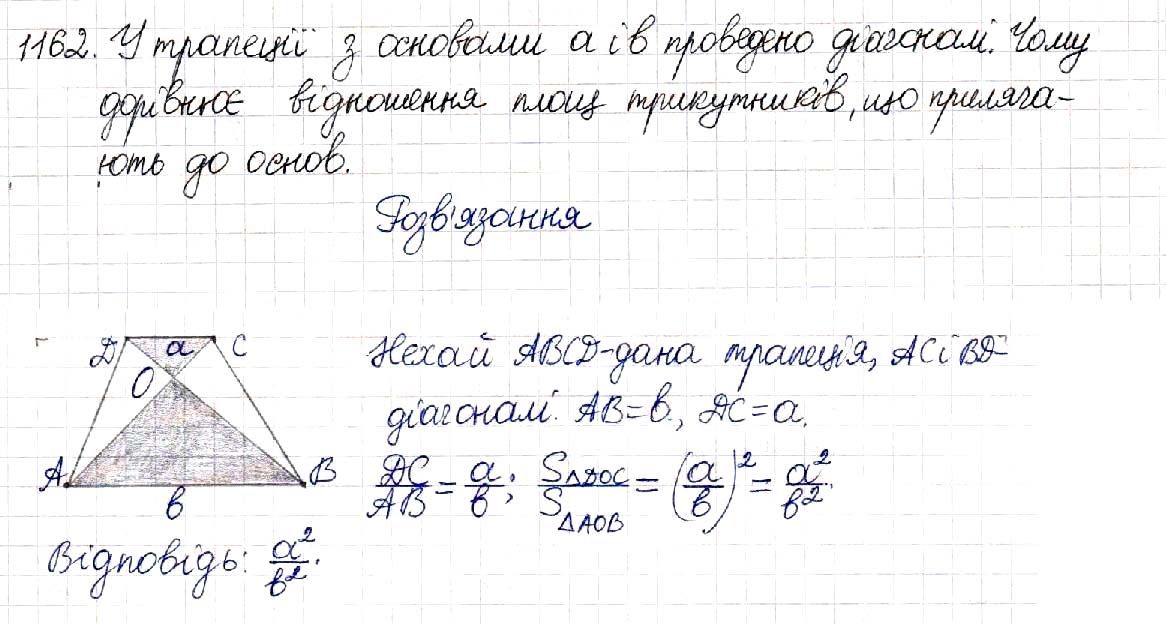 1162. У трапеції з основами a і b проведено діагоналі. Чому
дорівнює відношення площ трикутників, що приляга-
ють до основ.
Розв'язання
D a C
O
A B
b
Нехай ABCD-дана трапеція, AC і BD-
діагоналі. AB=b, DC=a.
DC/AB = a/b; S△DOC/S△AOB = (a/b)² = a²/b².
Відповідь: a²/b².